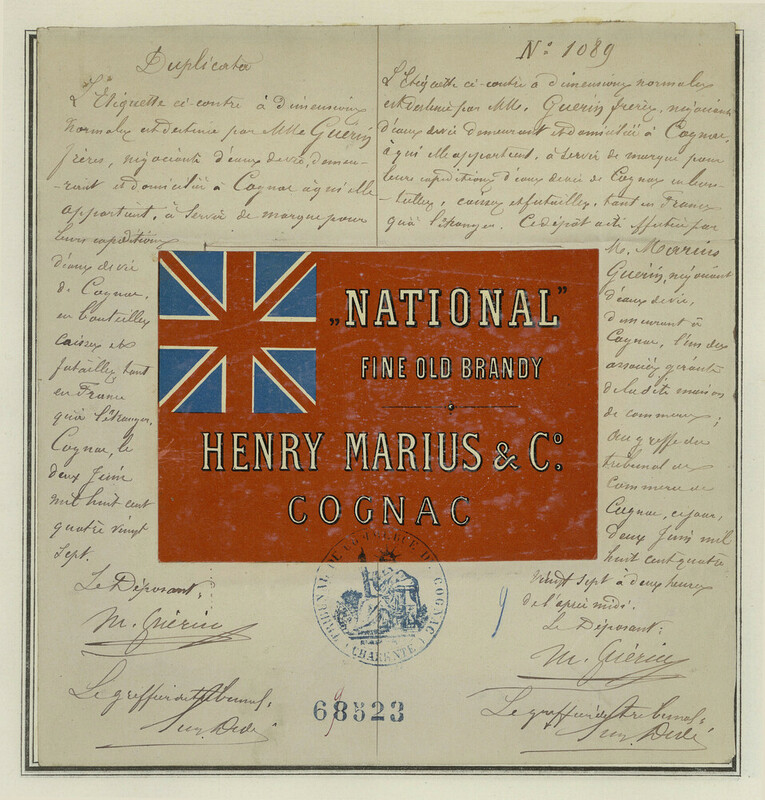 Duplicata
L'Etiquette ci-contre à dimensions
normales est destinée par MMrs Guérin
frères, négociants d'eaux de vie, demeu-
rant et domiciliés à Cognac à qui elle
appartient, à servir de marque pour
leurs expéditions
d'eaux de vie
de Cognac,
en bouteilles
caisses et
futailles, tant
en France
qu'à l'étranger.
Cognac, le
deux Juin
mil huit cent
quatre vingt
sept.
Le Déposant:
M. Guérin
Le greffier du tribunal:
No 1089
L'Etiquette ci-contre à dimensions normales
est destinée par MM. Guérin frères, négociants
d'eaux de vie demeurant et domiciliés à Cognac,
à qui elle appartient, à servir de marque pour
leurs expéditions d'eaux de vie de Cognac en bou-
teilles, caisses et futailles, tant en France
qu'à l'étranger. Ce dépôt a été effectué par
M. Marius
Guérin, négociant
d'eaux de vie,
demeurant à
Cognac, l'un des
associés gérants
de la dite maison
de commerce;
au greffe du
tribunal de
Commerce de
Cognac, ce jour,
deux Juin mil
huit cent quatre
vingt sept à deux heures
de l'après midi.
Le Déposant:
M. Guérin
Le greffier du tribunal:
„NATIONAL"
FINE OLD BRANDY
HENRY MARIUS & Co.
COGNAC
TRIBUNAL DE COMMERCE DE COGNAC
(CHARENTE)
9
9
68523